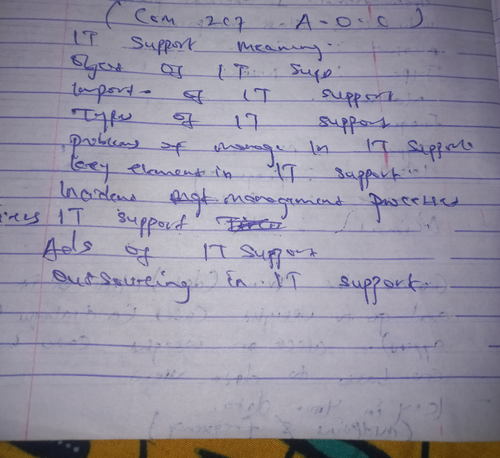 (Com 207 A-O-C)
IT Support meaning.
Objects Of IT Supp.
Import- of IT support
Types of IT support
problems of manage In IT Support
key element in IT support..
Incident mgt management processes
IT support
Ads of IT Support
Outsourcing in IT support.